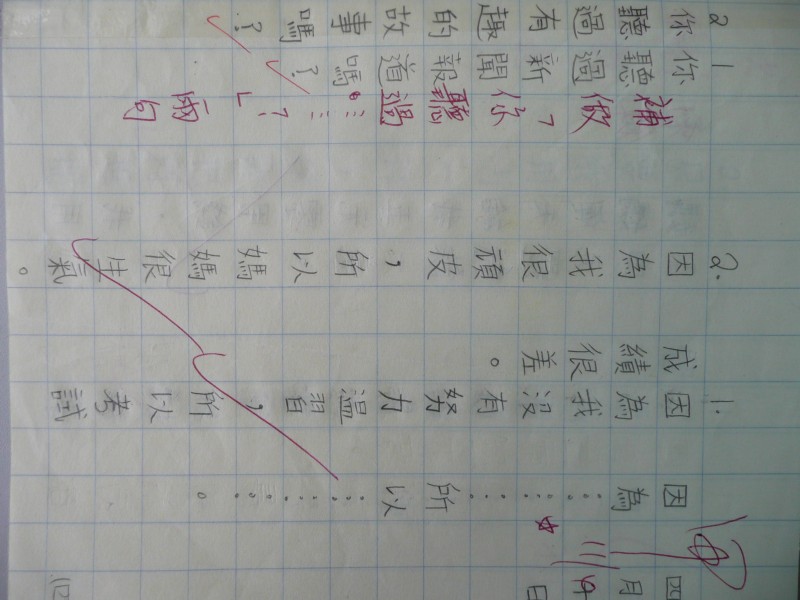 四月日
因為……所以……。
1.因為我沒有努力溫習，所以考試
成績很差。
2.因為我很頑皮，所以媽媽很生氣。
補做「你聽過……?」兩句
1 你聽過新聞報道嗎?
2 你聽過有趣的故事嗎?